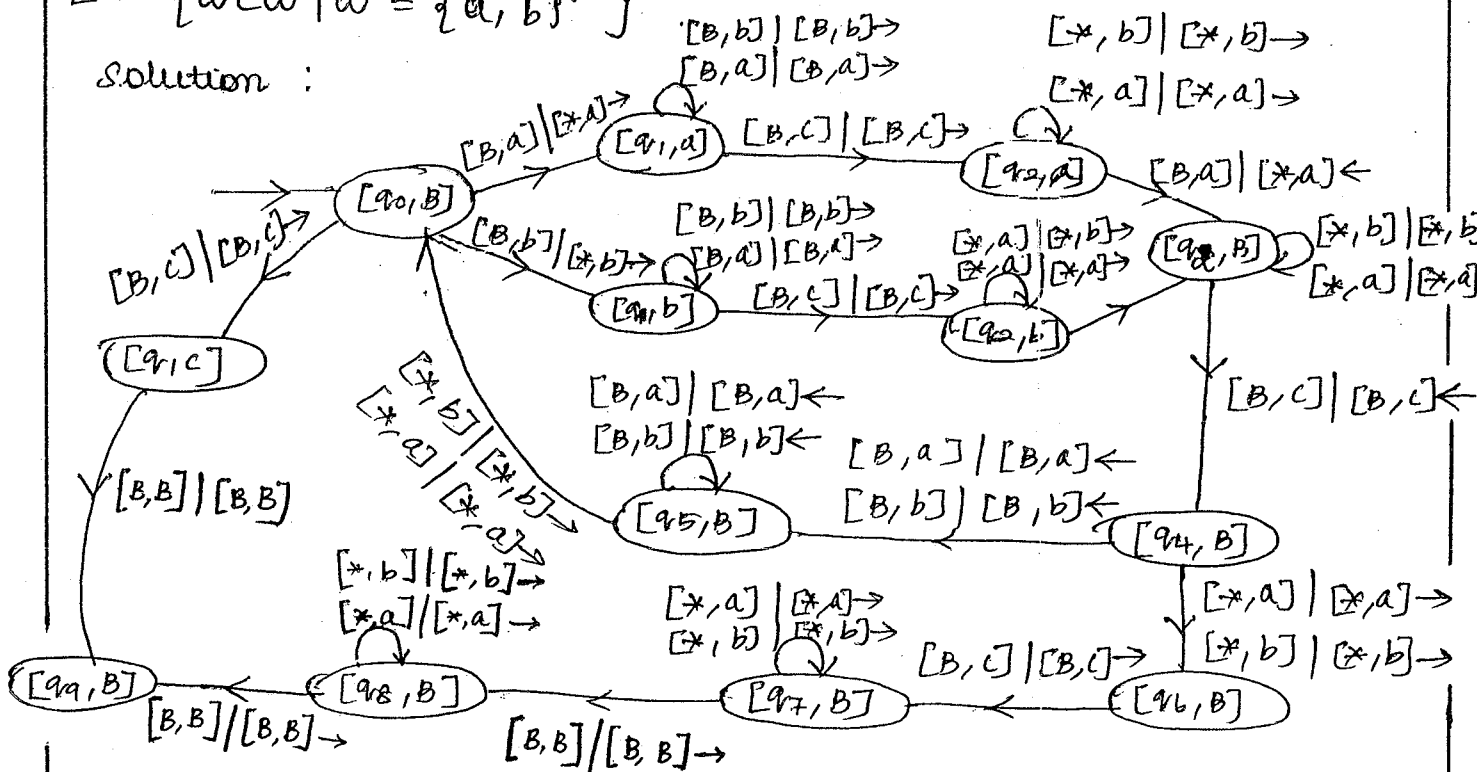 {wcw | w = {a, b}* }
solution :
[B,b] | [B,b]→
[B,a] | [B,a]→
[*,b] | [*,b]→
[*,a] | [*,a]→
[B,a] | [*,a]→
[q1,a]
[B,C] | [B,C]→
[q2,a]
[B,a] | [*,a]←
[q0,B]
[B,C] | [B,C]→
[B,b] | [*,b]→
[B,b] | [B,b]→
[B,a] | [B,a]→
[q1,b]
[B,C] | [B,C]→
[*,a] | [*,b]→
[*,a] | [*,a]→
[q2,b]
[*,b] | [*,b
[*,a] | [*,a]
[q,C]
[B,C] | [B,C]←
[B,B] | [B,B]
[*,b] | [*,b]→
[*,a] | [*,a]→
[B,a] | [B,a]←
[B,b] | [B,b]←
[q5,B]
[B,a] | [B,a]←
[B,b] | [B,b]←
[q4,B]
[*,a] | [*,a]→
[*,b] | [*,b]→
[*,b] | [*,b]→
[*,a] / [*,a]→
[*,a] | [*,a]→
[*,b] | [*,b]→
[B,C] | [B,C]→
[q9,B]
[q8,B]
[q7,B]
[q6,B]
[B,B] / [B,B]→
[B,B] / [B,B]→